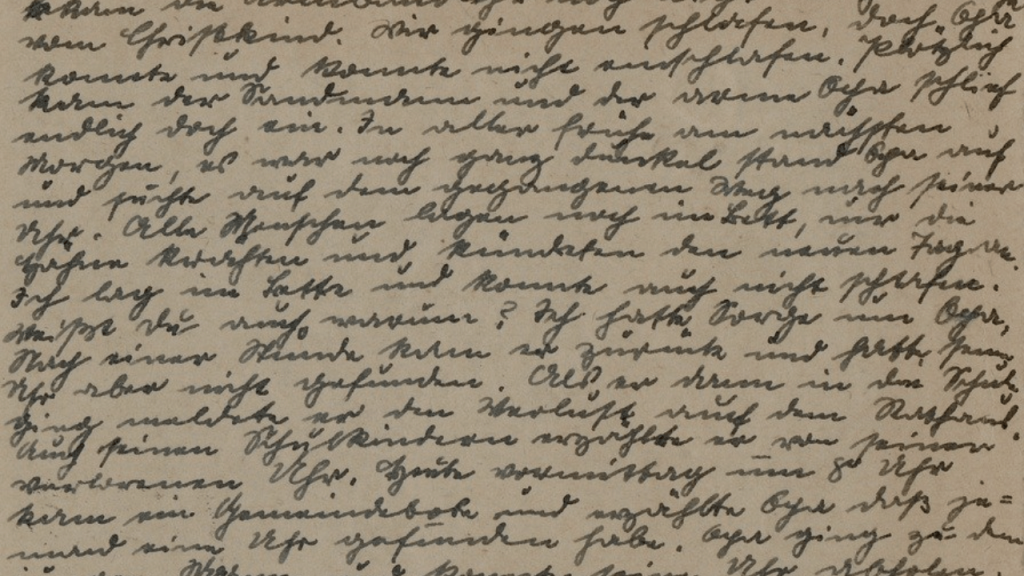 kam die Armbanduhr
vom Christkind. Wir gingen schlafen, doch Opa
konnte und konnte nicht einschlafen. Plötzlich
kam der Sandmann und der arme Opa schlief
endlich doch ein. In aller frühe am nächsten
Morgen, es war noch ganz dunkel stand Opa auf
und suchte auf dem gegangenen Weg nach seiner
Uhr. Alle Menschen lagen noch im Bett, nur die
Hähne krähten und kündeten den neuen Tag an.
Ich lag im Bette und konnte auch nicht schlafen.
Weißt Du auch warum? Ich hatte Sorge um Opa,
Nach einer Stunde kam er zurück und hatte seine
Uhr aber nicht gefunden. Als er dann in die Schule
ging meldete er den Verlust auf dem Rathaus.
Auch seinen Schulkindern erzählte er von seiner
verlorenen Uhr. Heute vormittag um 8 Uhr
kam ein Gemeindebote und erzählte Opa daß je=
mand eine Uhr gefunden habe. Opa ging zu dem
Uhr abholen.